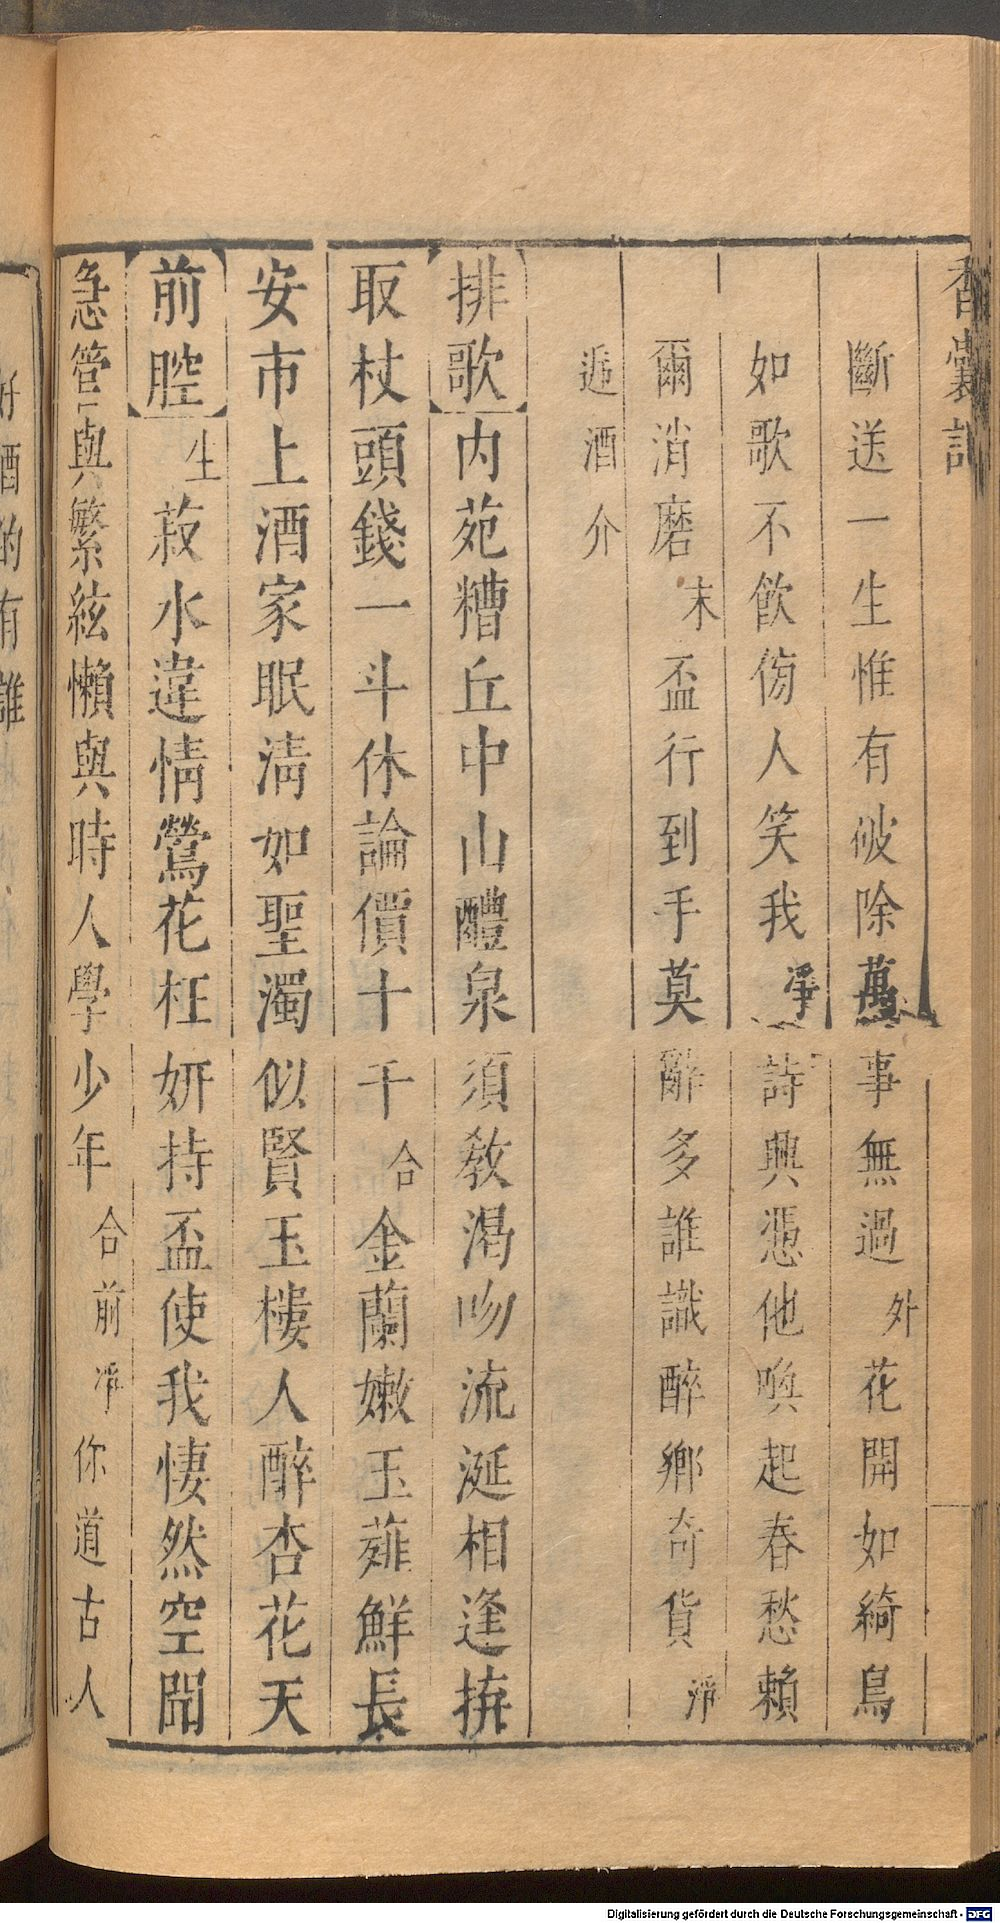 香囊記
斷送一生惟有破除萬事無過外花開如綺鳥
如歌不飲傍人笑我淨詩興憑他喚起春愁賴
爾消磨末盃行到手莫辭多誰識醉鄉奇貨淨
遞酒介
排歌內苑糟丘中山醴泉須教渴吻流涎相逢拚
取杖頭錢一斗休論價十千合金蘭嫩玉薤鮮長
安市上酒家眠淸如聖濁似賢玉樓人醉杏花天
前腔生菽水違情鶯花枉妍持盃使我悽然空聞
急管與繁絃懶與時人學少年合前淨你道古人
好酒的有誰
Digitalisierung gefördert durch die Deutsche Forschungsgemeinschaft - DFG